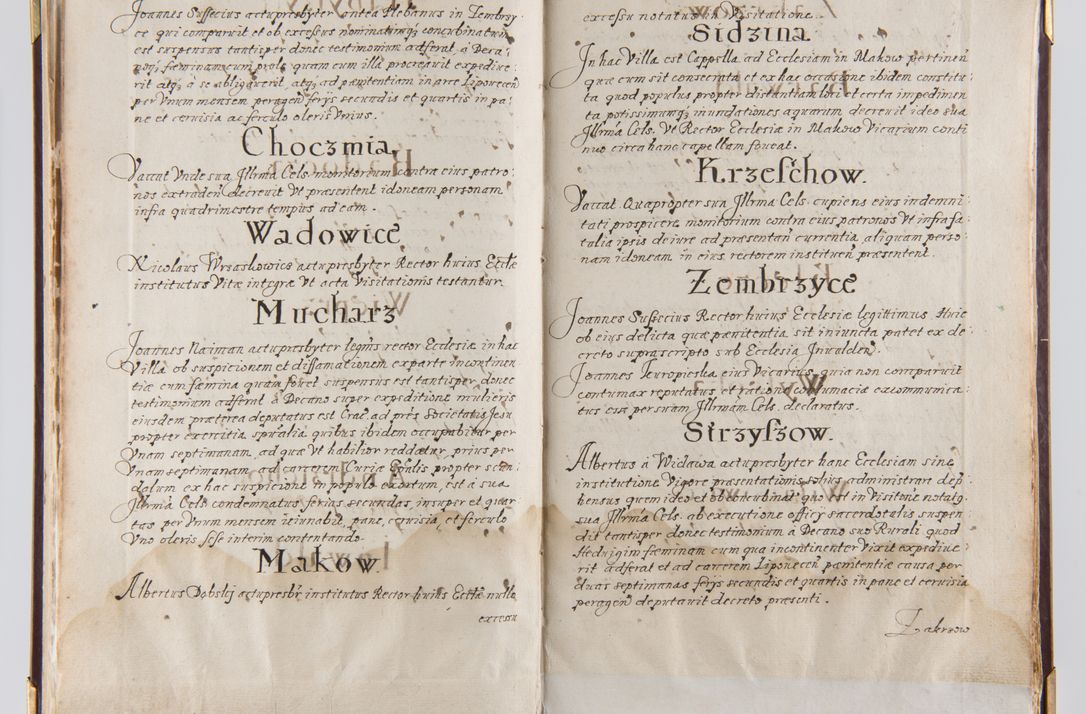 Joannes Sussecius actu presbyter ontea Plebanus in Zembrzy
ce qui comparuit et ob excessus nominatimq; concubinatum
est suspensus tantisper donec testimonium adferat à Deca
no q; fæminam cum prole quam cum illa procreavit expedive
rit atq; à se abligaverit, atq; ad pœnitentiam in arce Liponecen̄
per Vnum mensem peragen̄ ferÿs secundis et quartis in pa
ne et cervisia ac ferculo oleris Vnius.
Choczmia
Vaccat Vnde sua Jllrma Cels. monitorium contra eius patro
nos extraden̄ decrevit Vt præsentent idoneam personam
infra quadrimestre tempus ad eam.
Wadowice
Nicolaus Wrsaskowics actu presbyter Rector huius Eccłæ
institutus Vitæ integræ Vt acta Visitationis testantur.
Mucharz
Joannes Naiman actu presbyter legm̄s rector Ecclesiæ in hac
Villa ob suspicionem et diffamationem ex parte incontinen
tiæ cum fæmina quam fovet suspensus est tantisper, donec
testimonium adferat à Decano super expeditione mulieris
eiusdem præterea deputatus est Crac̄ ad prēs Societatis Jesu
propter exercitia spūalia quibus ibidem occupabitur per
Vnam septimanam, ad quæ Vt habilior reddatur, prius per
Vnam septimanam, ad carcerem Curiæ Epālis propter scan
dalum ex hac suspicione in populo exortum, est à sua
Jllrma Cels. condemnatus ferias secundas, insuper et quar
tas per Vnum mensem ieiunabit, pane, cervisia, et ferculo
Vno oleris sese interim contentando.
Makow
Albertus Dobskÿ actu presbr̄ institutus Rector huius Eccłæ nullo
excessu
excessu notatus in Visitatione.
Sidzina
Jn hac Villa est Cappella ad Ecclesiam in Makow pertinen̄
quæ cum sit consecrata et ex hac occasione ibidem constitu
ta quod populus propter distantiam loci et certa impedimen
ta potissimumq; inundationes aquarum decrevit ideo sua
Jllrma Cels. Vt Rector Ecclesiæ in Makow Vicarium conti
nuo circa hanc capellam foveat.
Krzeschow.
Vaccat. Quapropter sua Jllrma Cels. cupiens eius indemni
tati prospicere monitorium contra eius patronos Vt infra fa
talia ipsis de iure ad præsentan̄ currentia, aliquam perso
nam idoneam in eius rectorem instituen̄ præsentent.
Zembrzyce
Joannes Sussecius Rector huius Ecclesiæ legittimus. Huic
ob eius delicta quæ pœnitentia sit iniuncta patet ex de
creto suprascripto sub Ecclesia Jnvalden̄.
Joannes Kuropieska eius Vicarius, quia non comparuit
contumax reputatus et ratione contumaciæ excommunica
tus esse per suam Jllrmam Cels. declaratus.
Strzyszow.
Albertus à Widawa actu presbyter hanc Ecclesiam sine
institutione Vigore præsentationis solius administrare dep̄
hensus, quem ideo et ob concubinat̄ quo est in Visitone notatq;
sua Jllrma Cels. ab executione officÿ sacerdotalis suspen
dit tantisper donec testimonium à Decano suo Rurali quod
Hedvigim fæminam cum qua incontinenter Vixit expedive
rit adferat et ad carcerem Liponecen̄ pœnitentiæ causa per
duas septimanas ferÿs secundis et quartis in pane et cervisia
peragen̄ deputavit decreto præsenti.
Zakrzow